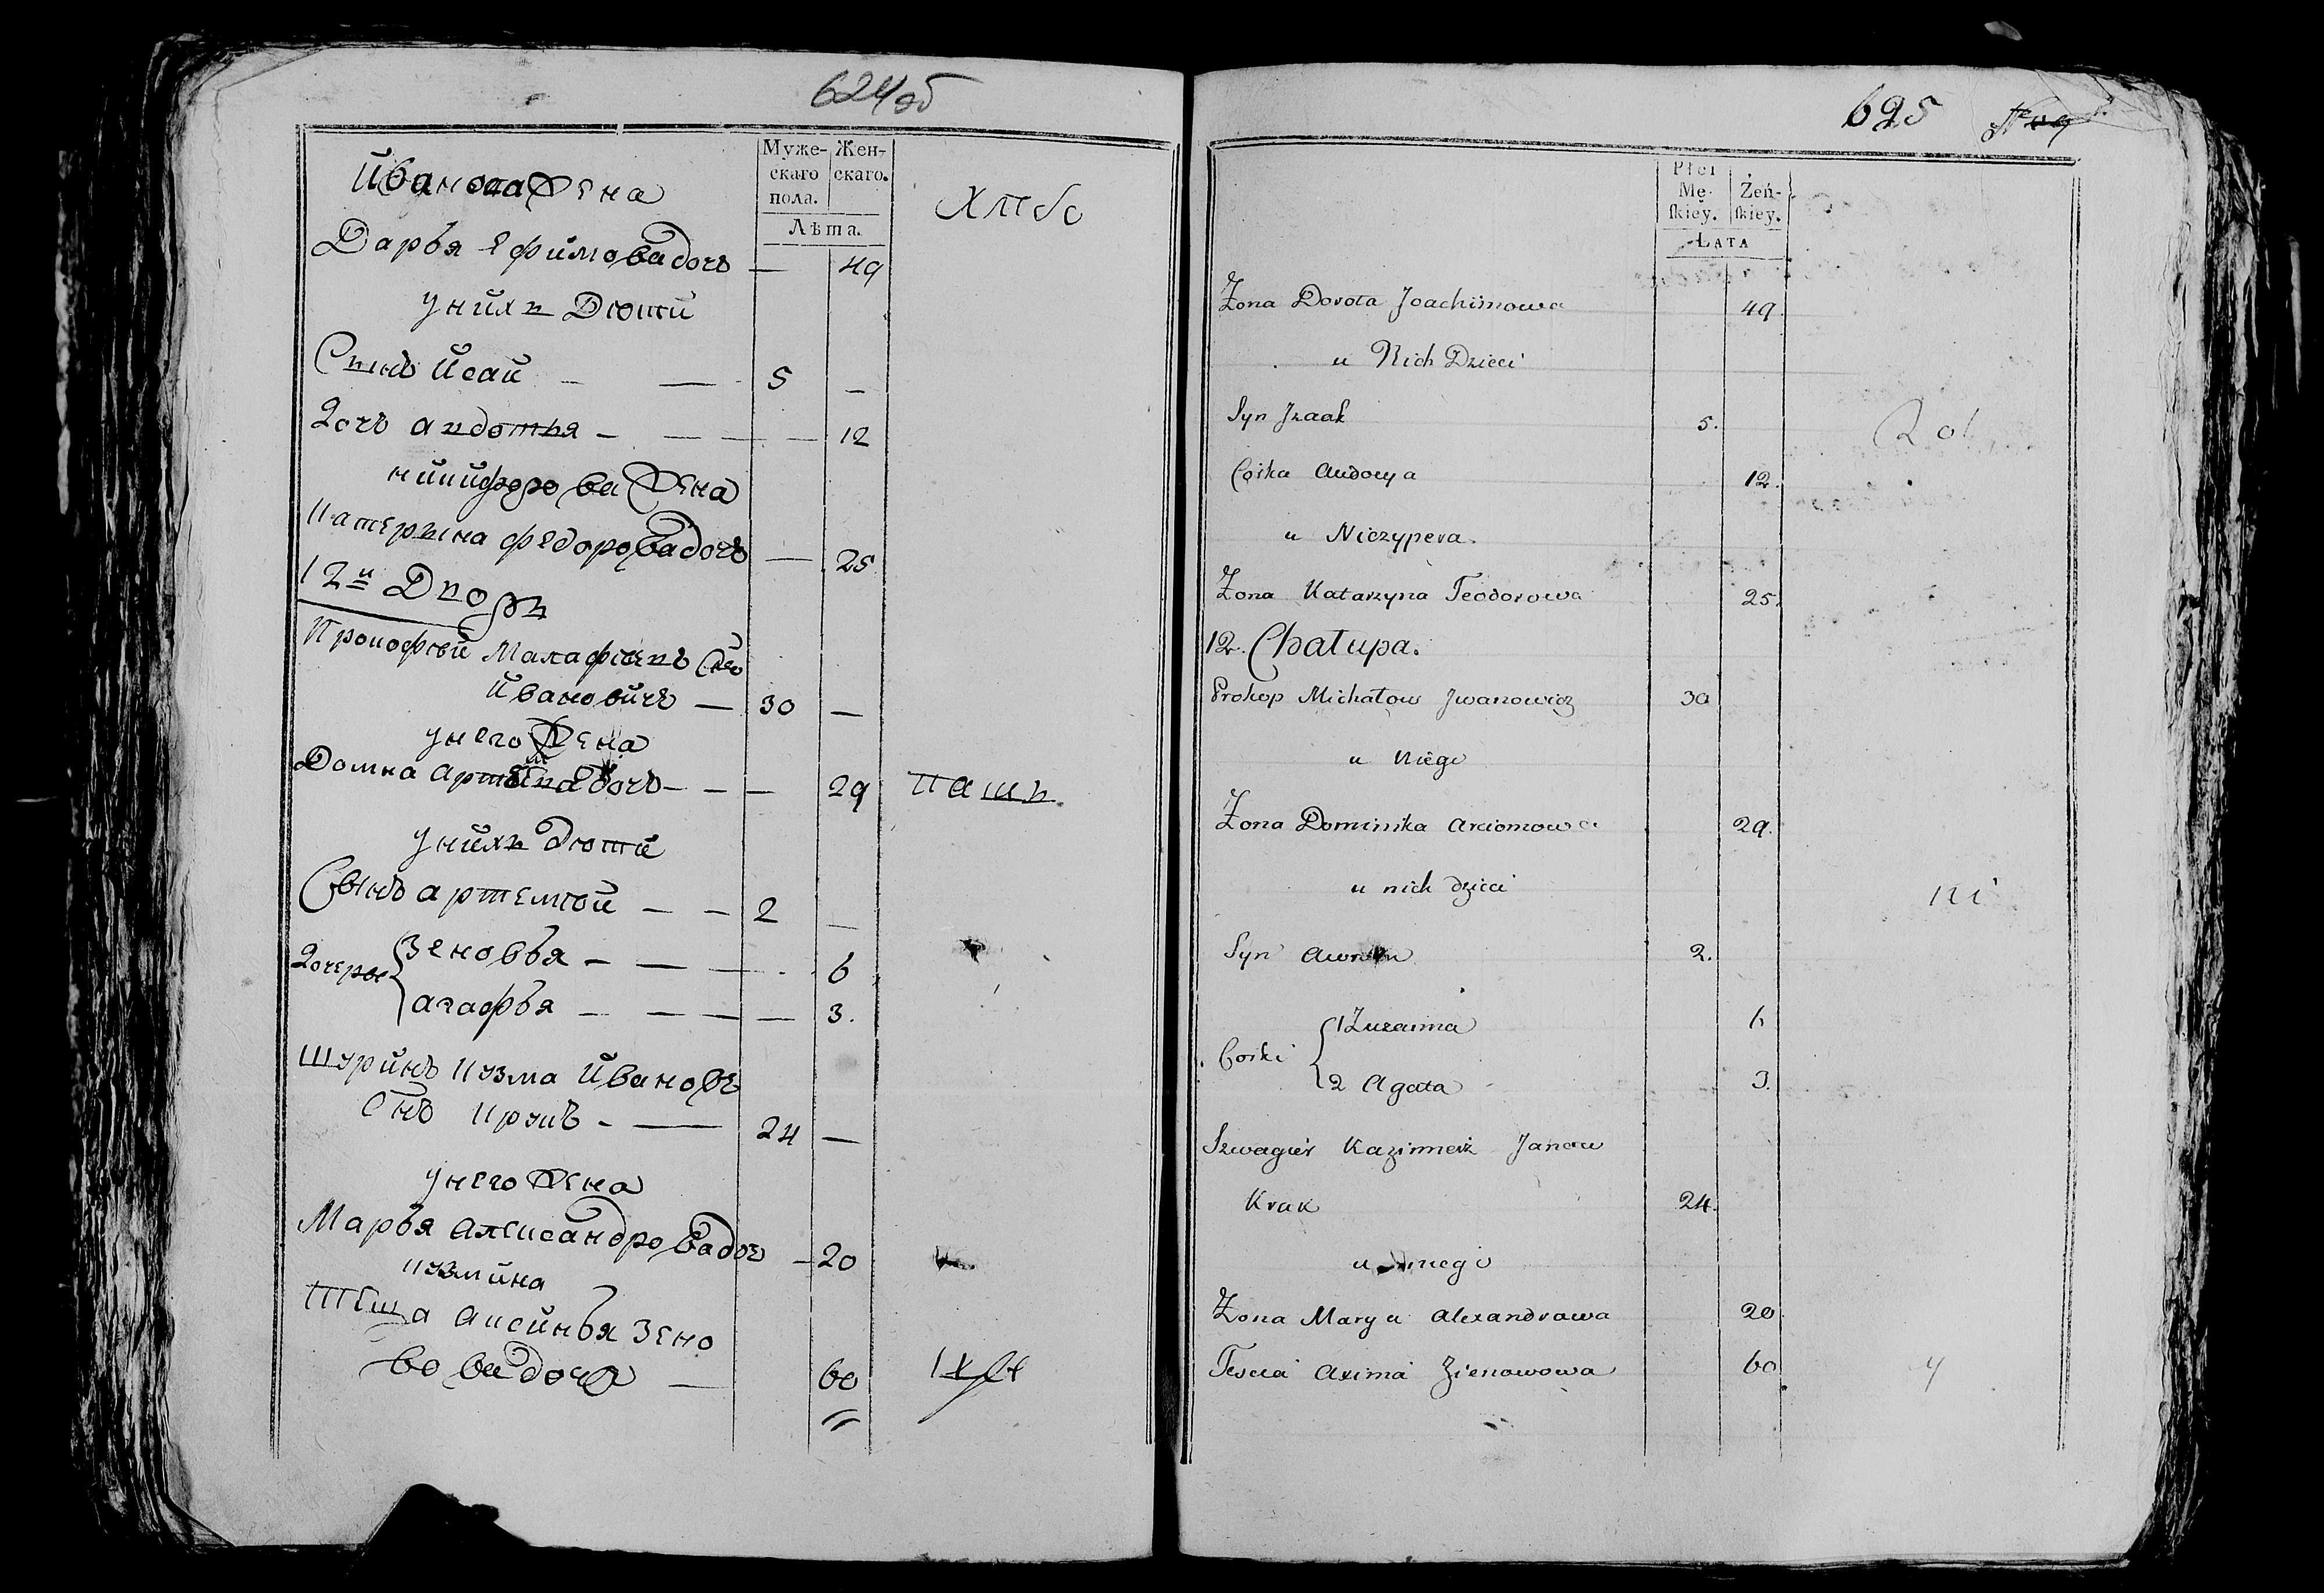 624 об
Муже- Жен-
скаго скаго.
пола.
Лѣта.
Иванова жена
Хлѣбо
Дарья Ефимова дочь — 49
у нихъ Дѣти
Сынъ Исай — — 5 —
Дочь Авдотья — — — — 12
Никифорова жена
Катерына Федорова дочь — 25
12й Дворъ
Прокофѣй Малафѣевъ Сынъ
Ивановичъ — 30 —
у него жена
Домна дочь — — — 29 паш
у нихъ дѣти
Сынъ Артемѣй — — 2 —
Дочеры Зеновья — — — 6
Агафья — — — — 3.
Шуринъ Кузма Ивановъ
Снъ Крукъ — — 24 —
у него жена
Марья Александрова доч — 20
Кузмина
Тѣща Аксинья Зено
вова дочь — 60
625
Płci
Mę- Żeń-
skiey. skiey.
Lata
Żona Dorota Joachimowa 49.
u Nich Dzieci
Syn Jzaak 5.
Corka Audocya 12.
u Niczypera.
Żona Katarzyna Teodorowa 25.
12. Chałupa.
Prokop Michałow Jwanowicz 30
u Niego
Żona Dominika Arciomowa 29.
u nich dzieci
Syn 2.
Corki 1 Zuzanna 6
2 Agata 3.
Szwagier Kazimierz Janow
Kruk 24.
u niego
Żona Marya Alexandrowa 20
Tescia Axinia Zienowowa 60